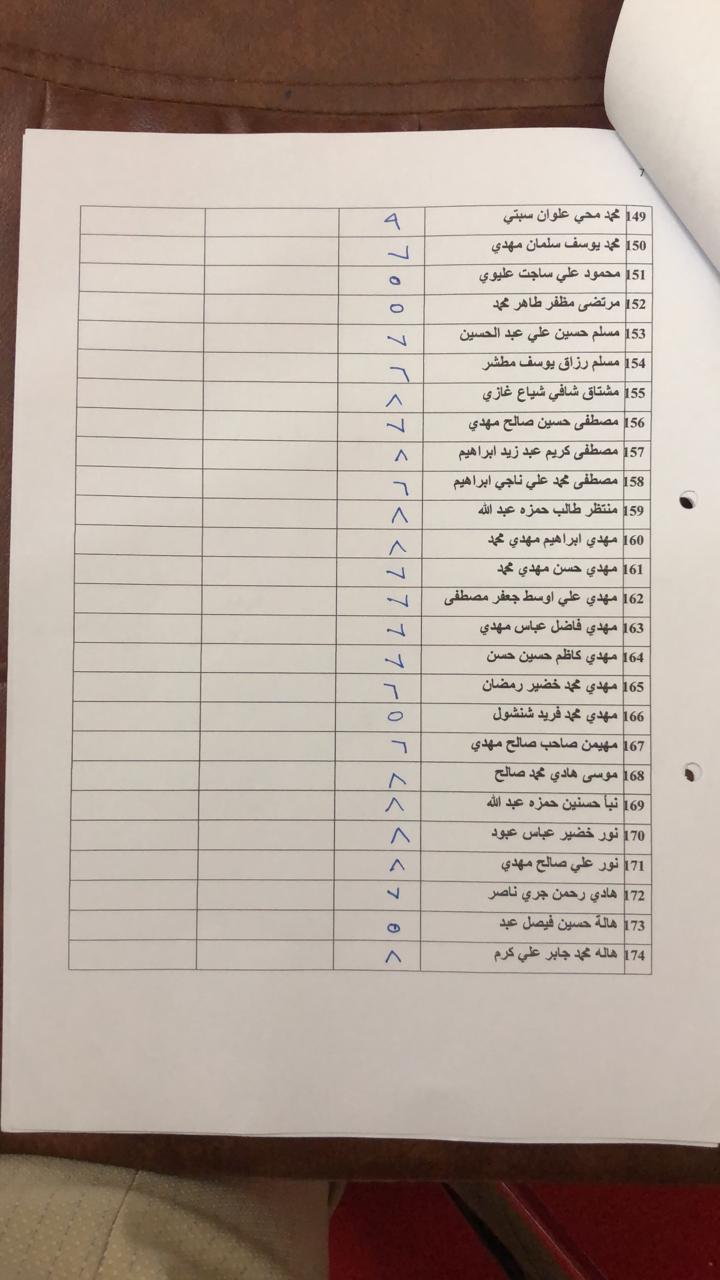 7
149 محمد محي علوان سبتي ٩
150 محمد يوسف سلمان مهدي ٧
151 محمود علي ساجت عليوي ٥
152 مرتضى مظفر طاهر محمد ٥
153 مسلم حسين علي عبد الحسين ٧
154 مسلم رزاق يوسف مطشر ٦
155 مشتاق شافي شياع غازي ٨
156 مصطفى حسين صالح مهدي ٧
157 مصطفى كريم عبد زيد ابراهيم ٨
158 مصطفى محمد علي ناجي ابراهيم ٦
159 منتظر طالب حمزه عبد الله ٨
160 مهدي ابراهيم مهدي محمد ٨
161 مهدي حسن مهدي محمد ٧
162 مهدي علي اوسط جعفر مصطفى ٧
163 مهدي فاضل عباس مهدي ٧
164 مهدي كاظم حسين حسن ٧
165 مهدي محمد خضير رمضان ٦
166 مهدي محمد فريد شنشول ٥
167 مهيمن صاحب صالح مهدي ٦
168 موسى هادي محمد صالح ٨
169 نبأ حسنين حمزه عبد الله ٨
170 نور خضير عباس عبود ٨
171 نور علي صالح مهدي ٨
172 هادي رحمن جري ناصر ٧
173 هالة حسين فيصل عبد ٥
174 هاله محمد جابر علي كرم ٨